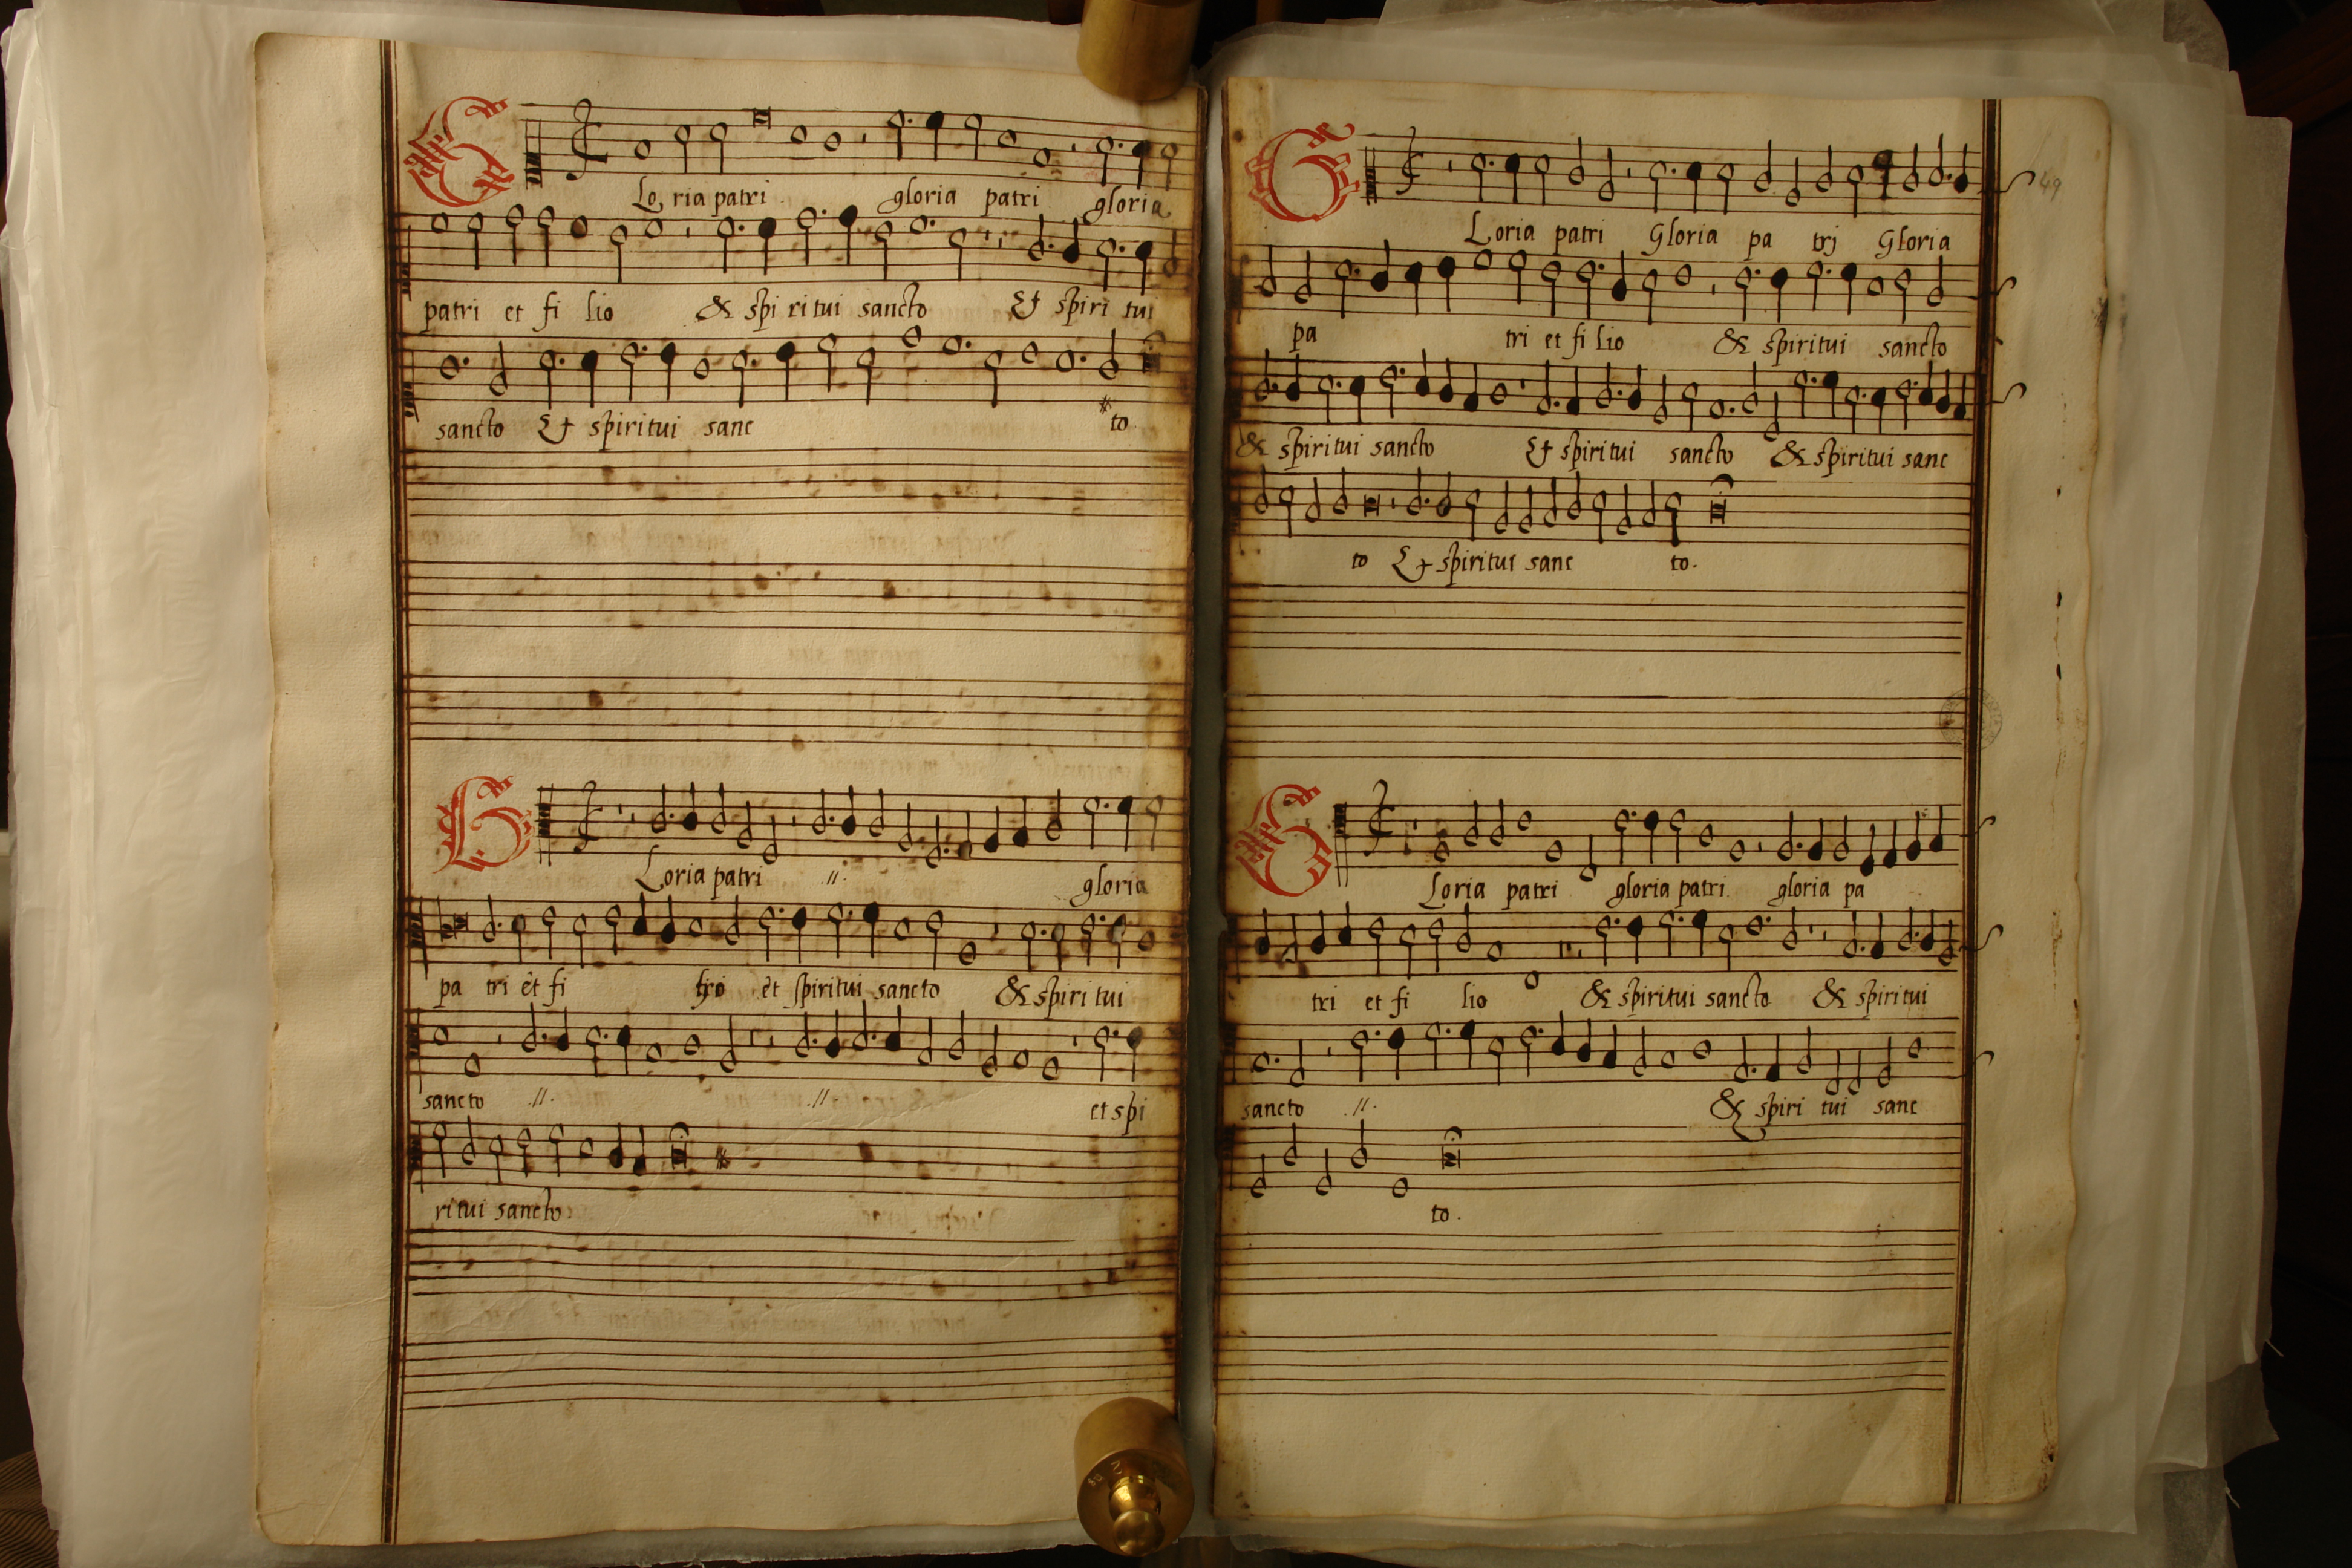 GLoria patri gloria patri gloria
patri et fi lio & spiritui sancto Et spiri tui
sancto Et spiritui sanc to.
GLoria patri .//. gloria
pa tri et fi et spiritui sancto & spiri tui
sancto .//. .//. et spi
ritui sancto.
49
GLoria patri Gloria pa trj Gloria
pa tri et fi lio & spiritui sancto
& spiritui sancto Et spiritui sancto & spiritui sanc
to Et spiritui sanc to.
GLoria patri gloria patri gloria pa
tri et fi lio & spiritui sancto & spiritui
sancto .//. & spiri tui sanc
to.